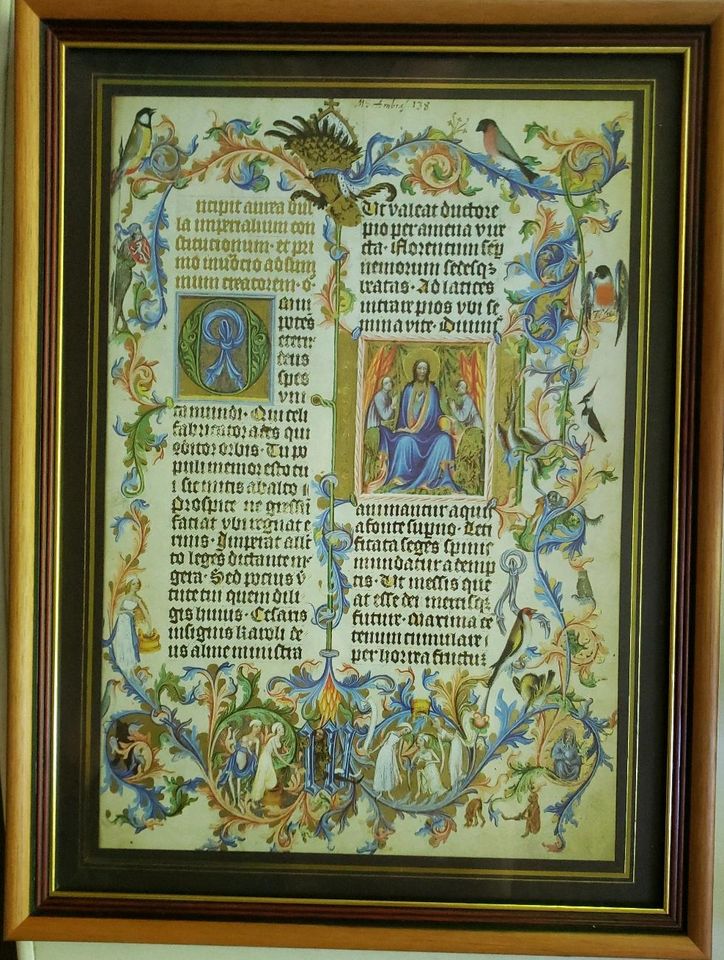 Ms Ambras. 138
ncipit aurea bul
la imperialium con
stitucionum · et pri
mo invocacio ad sum
mum creatorem · O
mni
potens
eterne
deus
spes
uni
ca mundi · Qui celi
fabricator ades qui
conditor orbis · Tu po
puli memor esto tu
i sic mitis ab alto
Prospice ne gressum
faciat ubi regnat e
rinis · Imperat alle
cto leges dictante me
gera · Sed pocius vir
tute tui quem dili
gis huius · Cesaris
insignis karoli de
us alme ministra
Ut valeat ductore
pio per amena vire
cta · Florentum sem
nemorum sedesque
beatas · Ad latices
intrare pios ubi se
mina vite · Divinis
animantur aquis
a fonte superno · Leti
ficata seges spinis
mundatur ademp
tis · Ut messis que
at esse dei mercisque
future · Maxima ce
tenum cumulare
per horrea fructum